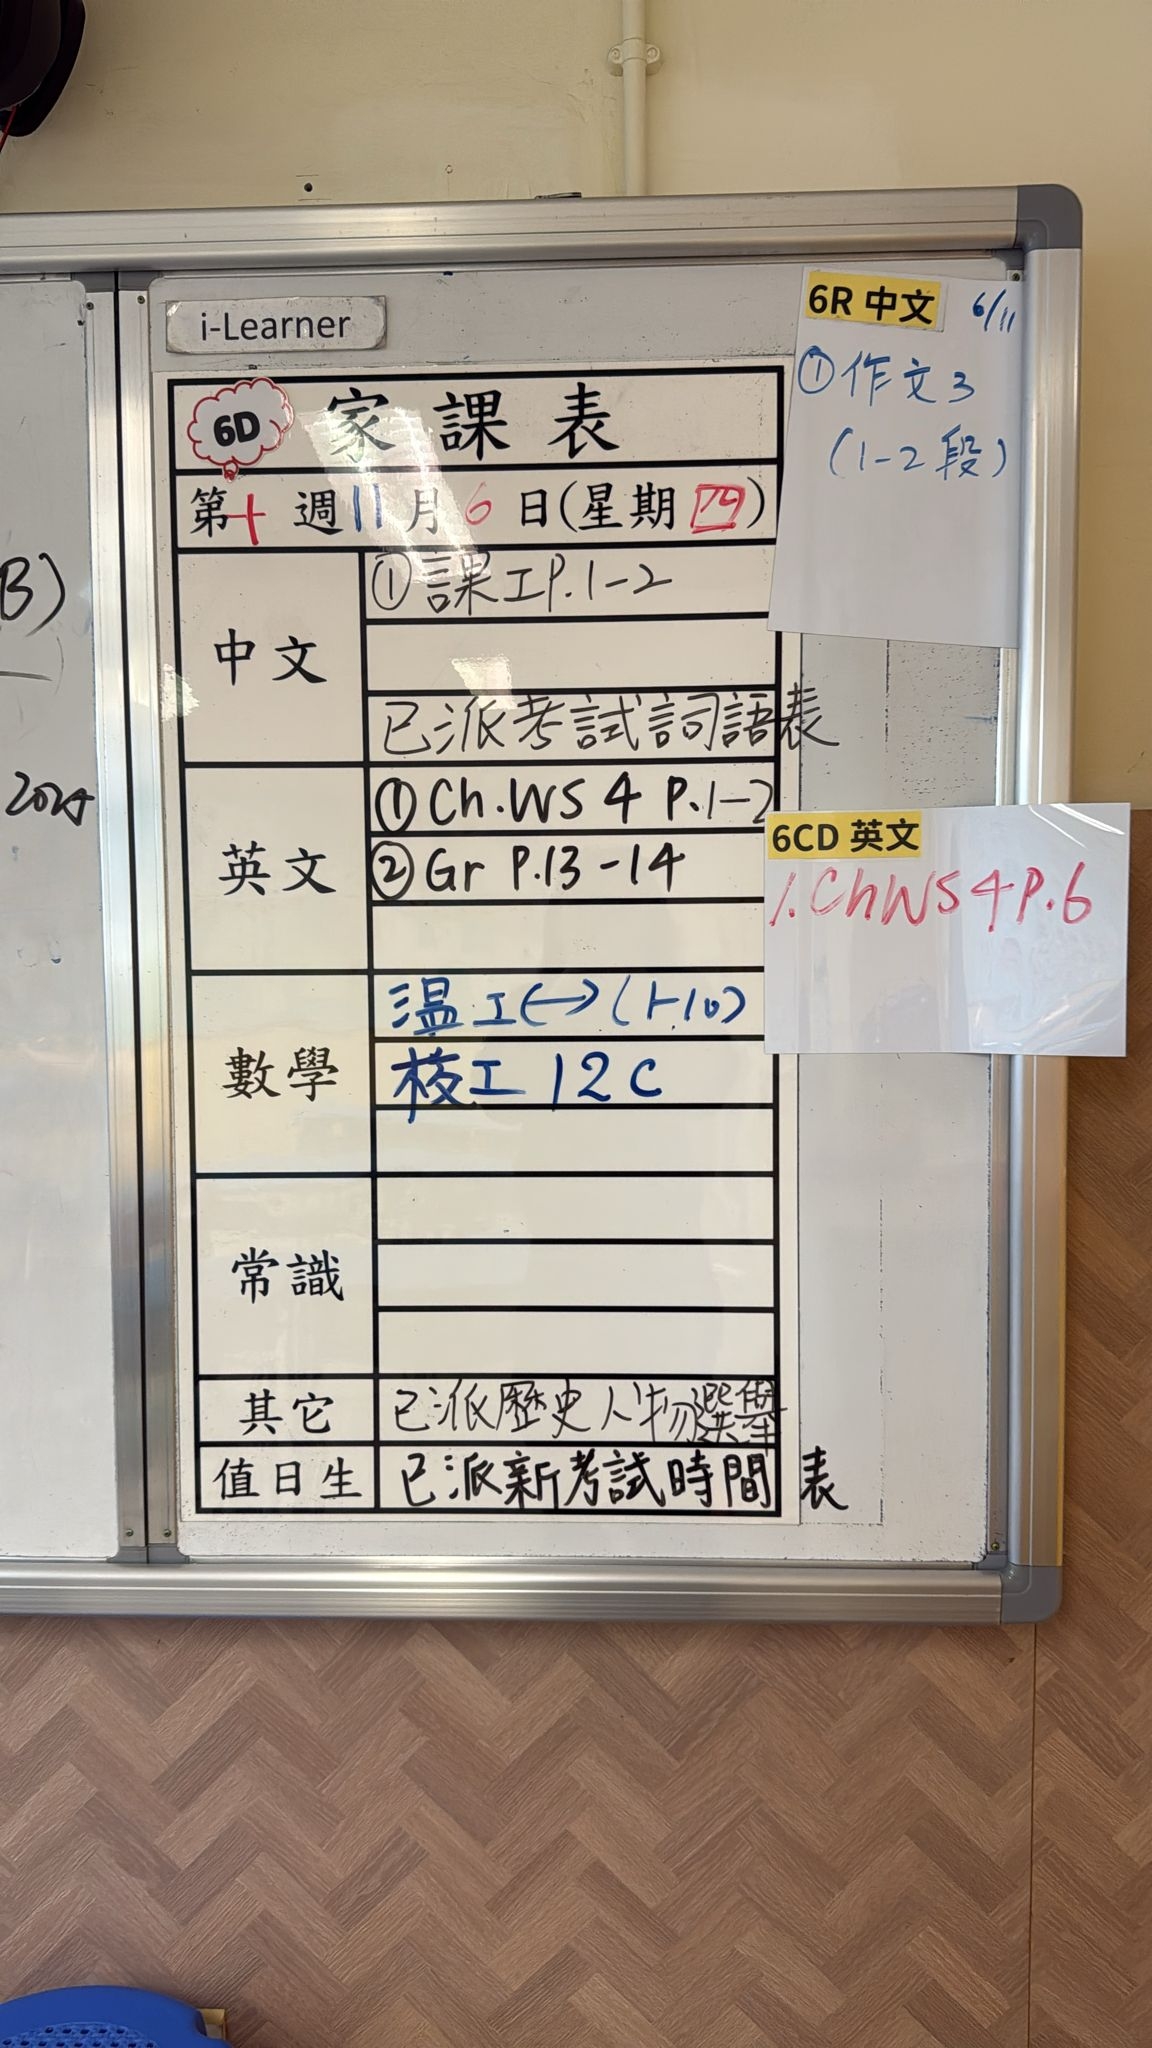 i-Learner
6D 家課表
第十週11月6日(星期四)
中文
①課工P.1-2
已派考試詞語表
英文
①Ch.WS 4 P.1-2
②Gr P.13-14
數學
温工(一)(1-10)
校工 12C
常識
其它
已派歷史人物選舉
值日生
已派新考試時間表
6R 中文 6/11
①作文3
(1-2段)
6CD 英文
1.ChWS 4 P.6
B)